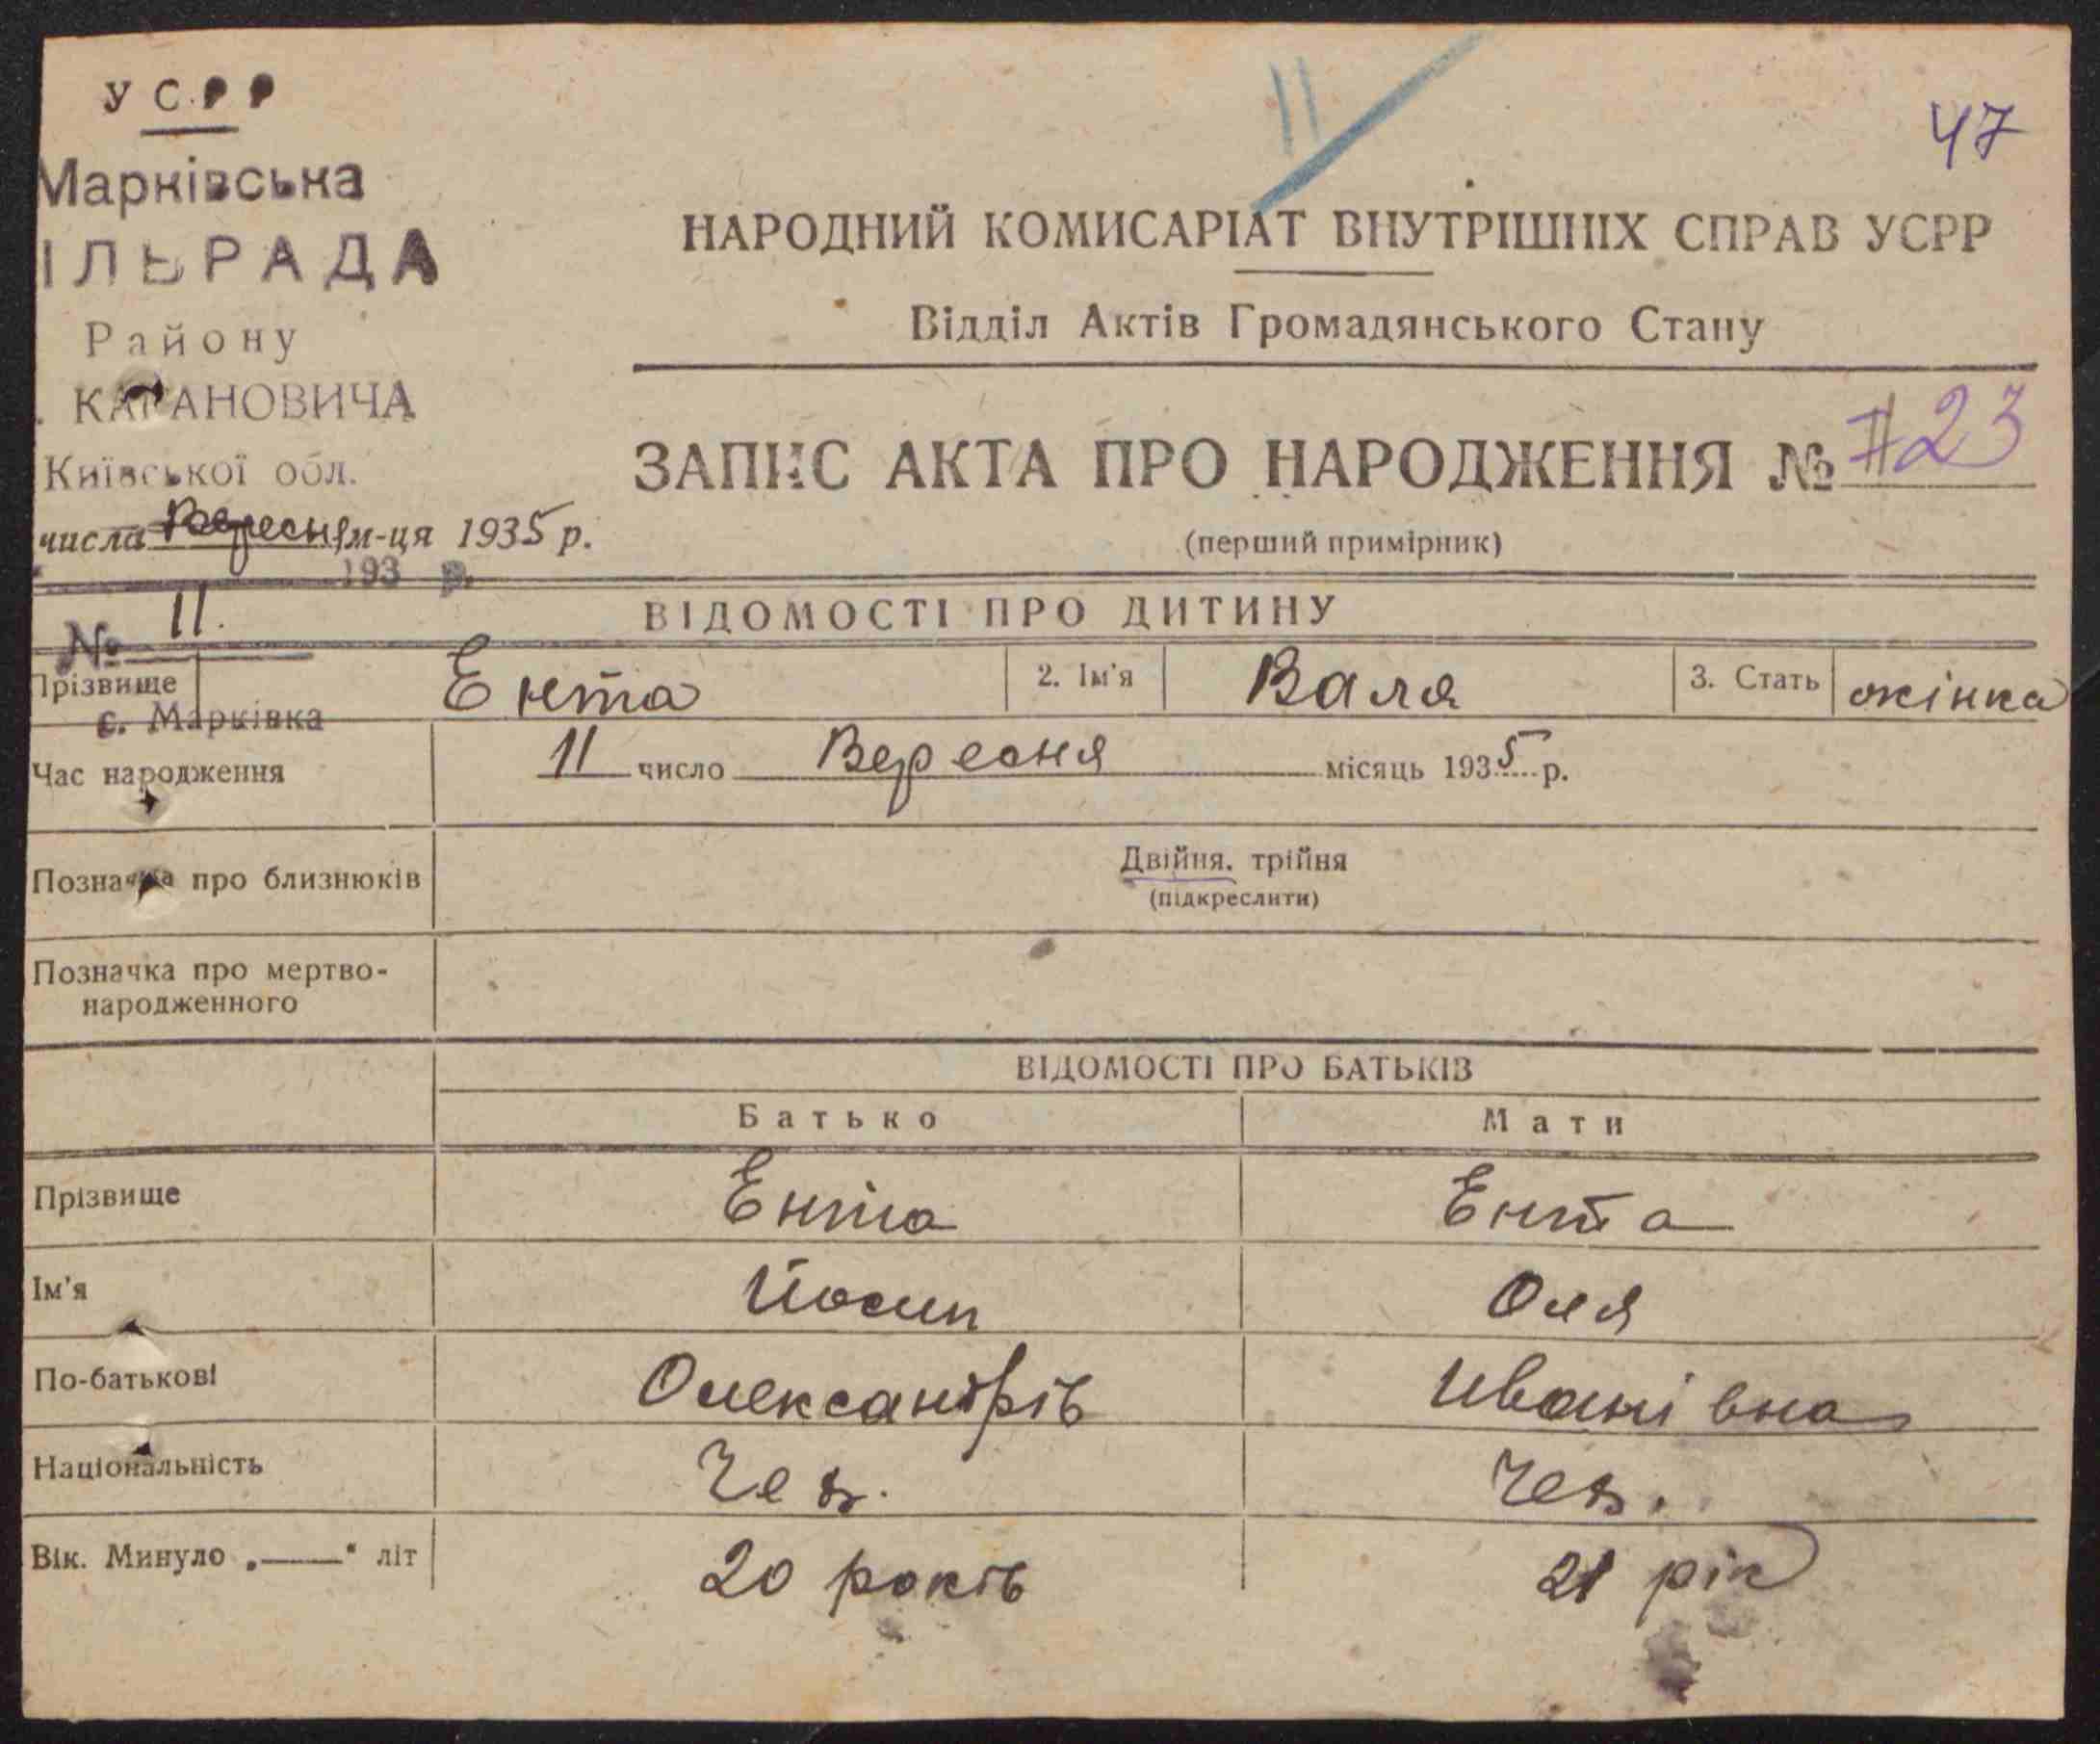 УСРР
47
Марківська
ІЛЬРАДА
Району
КАГАНОВИЧА
Київської обл.
числа Вересня м-ця 1935 р.
193 р.
№ 11.
с. Марківка
11
НАРОДНИЙ КОМИСАРІАТ ВНУТРІШНІХ СПРАВ УСРР
Відділ Актів Громадянського Стану
ЗАПИС АКТА ПРО НАРОДЖЕННЯ № 23
(перший примірник)
ВІДОМОСТІ ПРО ДИТИНУ
Прізвище Ента 2. Ім'я Валя 3. Стать жінка
Час народження 11 число Вересня місяць 1935 р.
Позначка про близнюків Двійня, трійня
(підкреслити)
Позначка про мертво-
народженного
ВІДОМОСТІ ПРО БАТЬКІВ
Батько Мати
Прізвище Ента Ента
Ім'я Йосип Оля
По-батькові Олександрів Иванівна
Національність
Вік. Минуло „——“ літ 20 років 21 рік